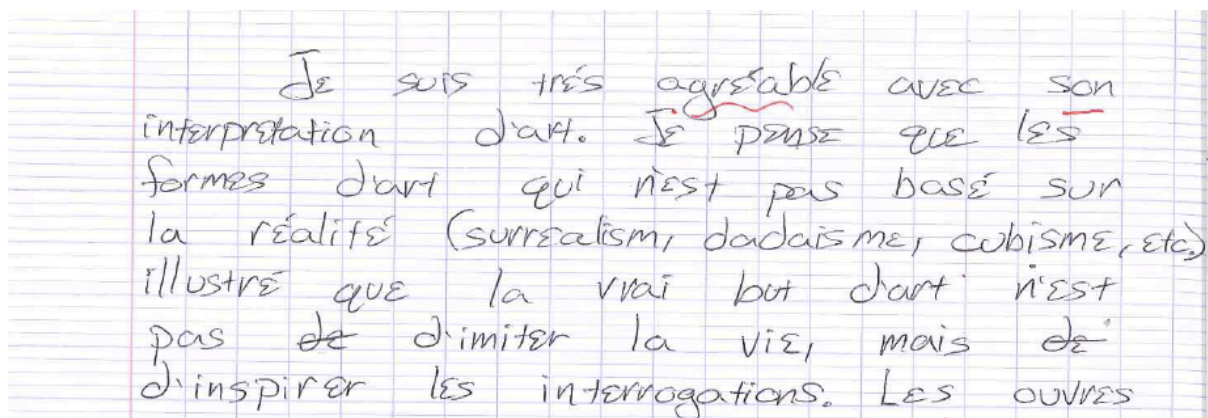 Je suis trés agréable avec son
interpretation d'art. Je pense que les
formes d'art qui n'est pas basé sur
la réalité (surrealism, dadaisme, cubisme, etc.)
illustré que la vrai but d'art n'est
pas de d'imiter la vie, mais de
d'inspirer les interrogations. Les ouvres